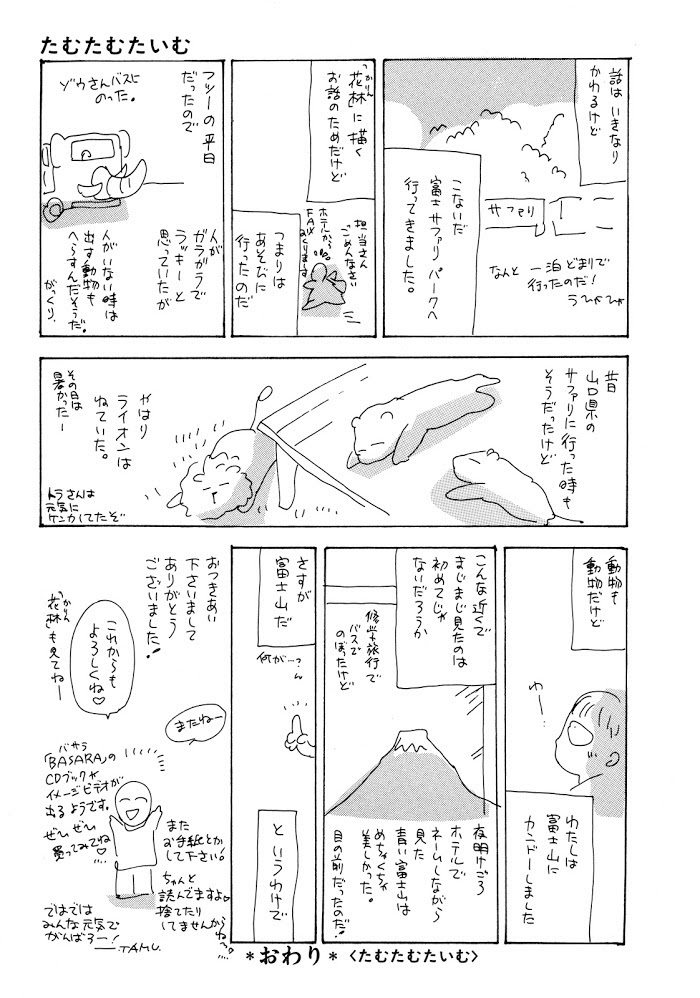 たむたむたいむ
話は いきなり
かわるけど
こないだ
富士サファリパークへ
行ってきました。
サファリ
なんと 一泊どまりで
行ったのだ!
うひゃひゃ
「花林」に描く
かりん
お話のためだけど
担当さん
ごめんなさい
ホテルから
FAXおくります
つまりは
あそびに
行ったのだ
フツーの平日
だったので
ゾウさんバスに
のった。
人が
ガラガラで
ラッキーと
思っていたが
人がいない時は
出す動物も
へらすんだそうだ。
がっくり。
昔
山口県の
サファリに行った時も
そうだったけど
やはり
ライオンは
ねていた。
その日は
暑かったー
トラさんは
元気に
ケンカしてたぞ
動物も
動物だけど
わー…
わたしは
富士山に
カンドーしました
こんな近くで
まじまじ見たのは
初めてじゃ
ないだろうか
修学旅行で
バスで
のぼったけど
夜明けごろ
ホテルで
ネームしながら
見た
青い富士山は
めちゃくちゃ
美しかった。
目の前だったのだ!
さすが
富士山だ
何が…?
というわけで
おつきあい
下さいまして
ありがとう
ございました!
「花林」も見てねー
かりん
これからも
よろしくね♡
またねー
バサラ
「BASARA」の
CDブックや
イメージビデオが
出るようです。
ぜひぜひ
買ってみてね♡
また
お手紙とか
して下さい。
ちゃんと
読んでますよ
捨てたり
してませんから
ねー
ではでは
みんな元気で
がんばろー!
―TAMU.
*おわり* <たむたむたいむ>